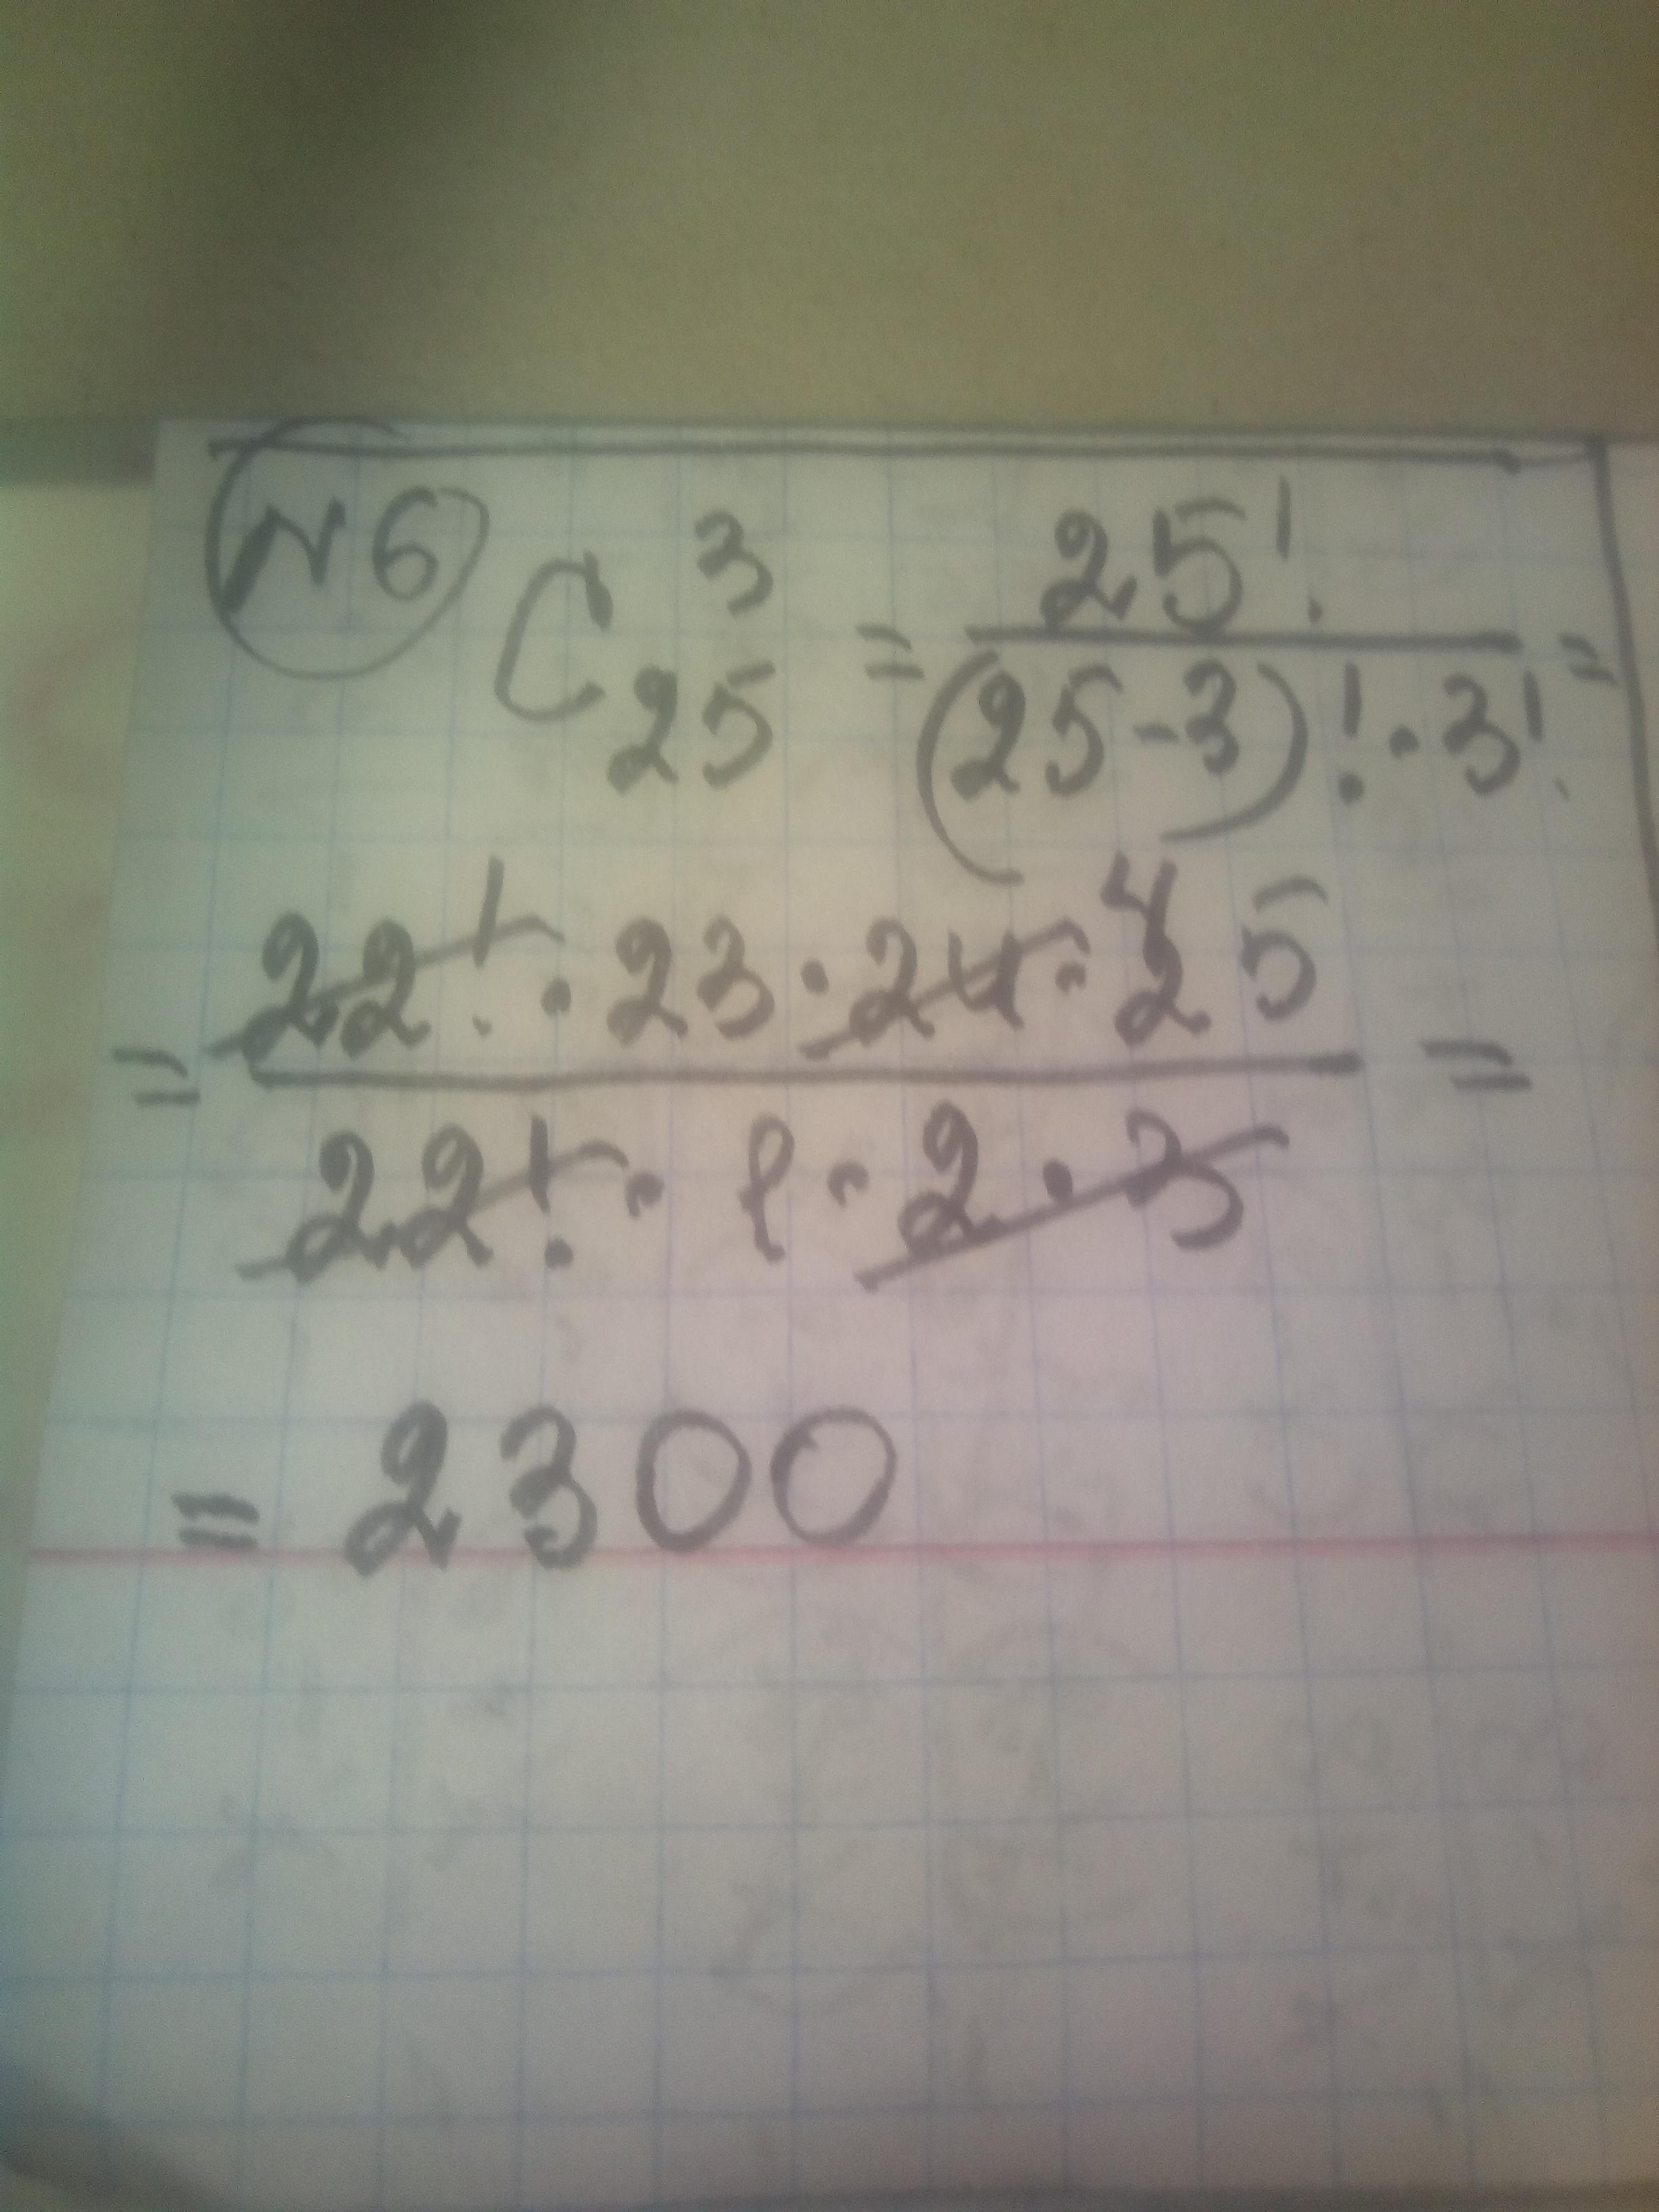 N6 C₂₅³ = 25! / (25-3)! · 3! =
= 22! · 23 · 24 · 4 25 / 22! · 1 · 2 · 3 =
= 2300